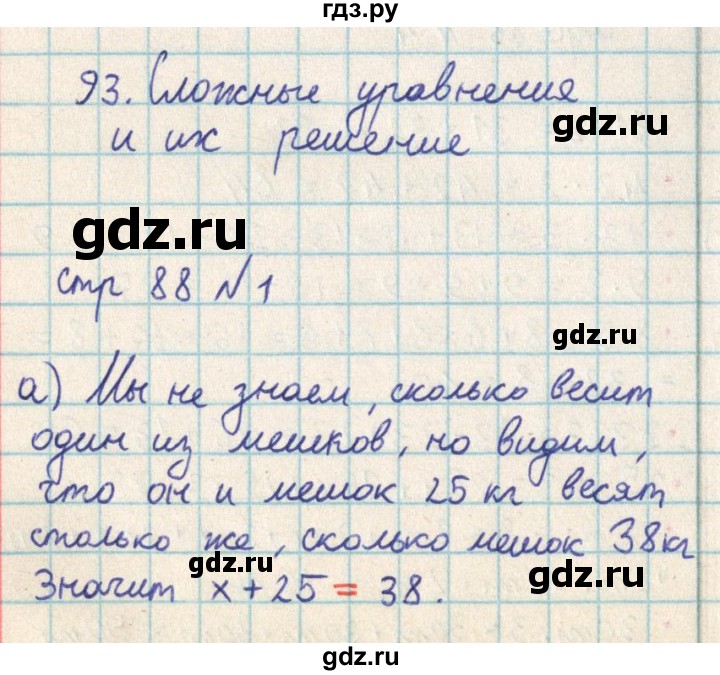 гдз.ру
93. Сложные уравнения
gdz.ru
и их решение
gdz.ru
стр 88 №1
gdz.ru
а) Мы не знаем, сколько весит
gdz.ru
один из мешков, но видим,
что он и мешок 25 кг весят
столько же, сколько мешок 38 кг
Значит x + 25 = 38.
gdz.ru
gdz.ru
gdz.ru